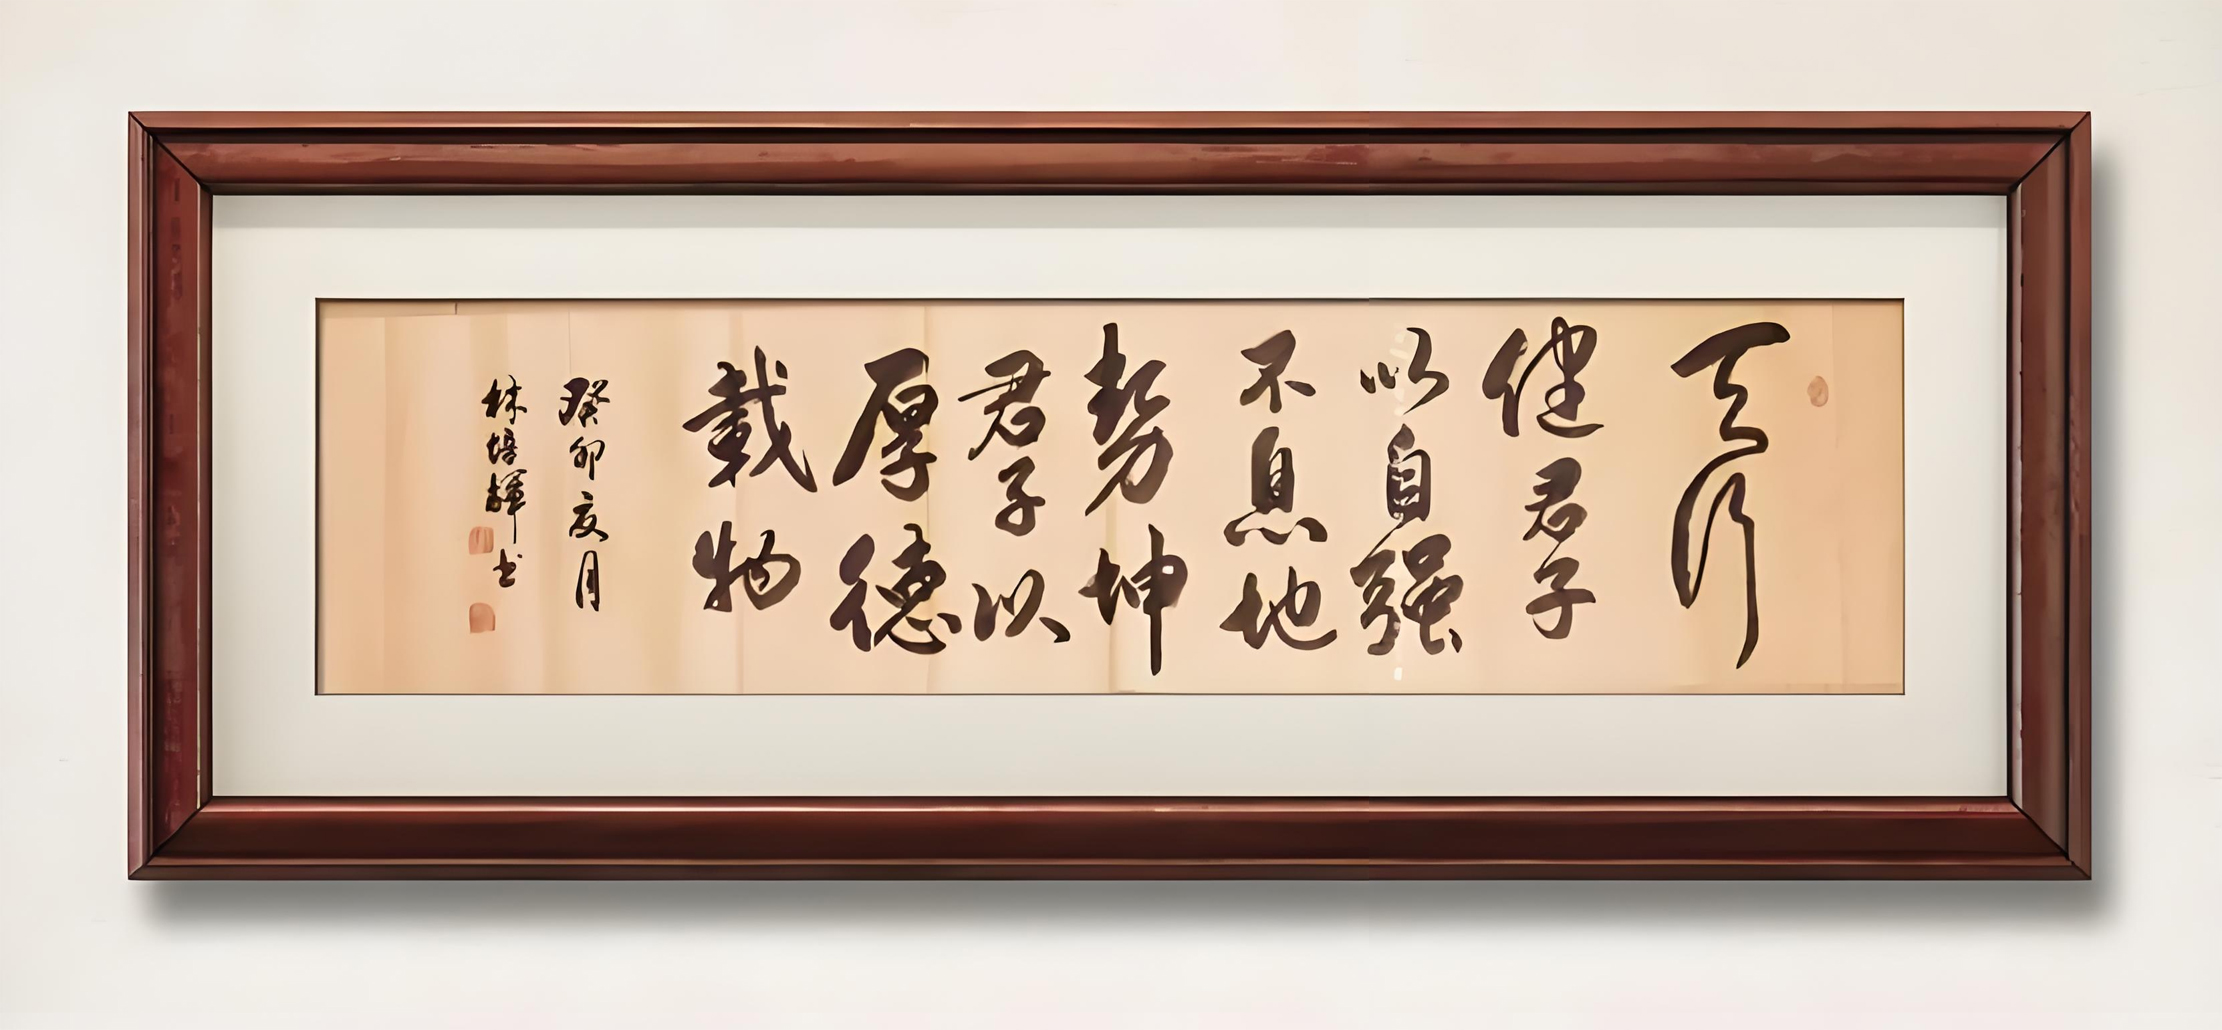 天行
健君子
以自强
不息地
势坤
君子以
厚德
載物
癸卯夏月
林培輝书